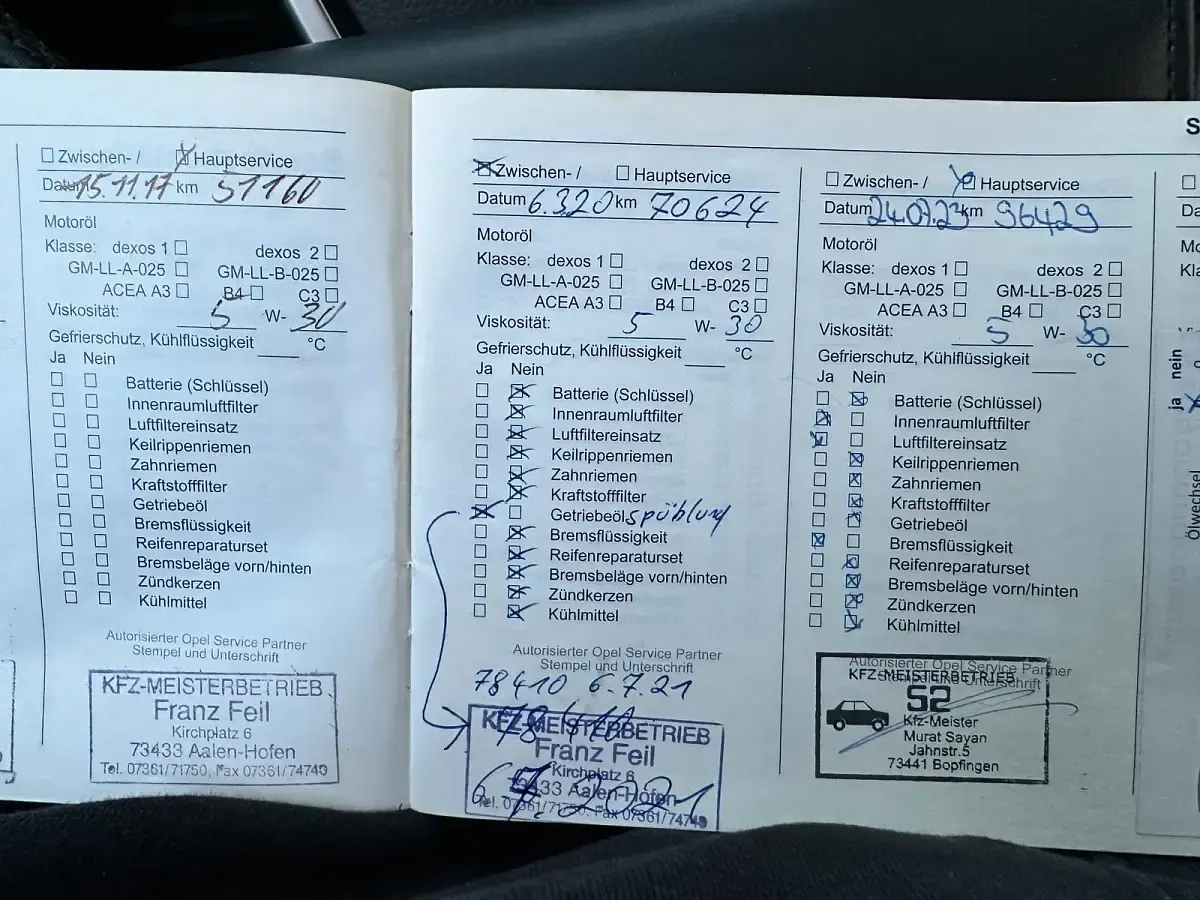 ☐ Zwischen- / ☒ Hauptservice
Datum 15.11.17 km 51160
Motoröl
Klasse: dexos 1 ☐ dexos 2 ☐
GM-LL-A-025 ☐ GM-LL-B-025 ☐
ACEA A3 ☐ B4 ☐ C3 ☐
Viskosität: 5 W- 30
Gefrierschutz, Kühlflüssigkeit ____ °C
Ja Nein
☐ ☐ Batterie (Schlüssel)
☐ ☐ Innenraumluftfilter
☐ ☐ Luftfiltereinsatz
☐ ☐ Keilrippenriemen
☐ ☐ Zahnriemen
☐ ☐ Kraftstofffilter
☐ ☐ Getriebeöl
☐ ☐ Bremsflüssigkeit
☐ ☐ Reifenreparaturset
☐ ☐ Bremsbeläge vorn/hinten
☐ ☐ Zündkerzen
☐ ☐ Kühlmittel
Autorisierter Opel Service Partner
Stempel und Unterschrift
KFZ-MEISTERBETRIEB
Franz Feil
Kirchplatz 6
73433 Aalen-Hofen
Tel. 07361/71750, Fax 07361/74740
☒ Zwischen- / ☐ Hauptservice
Datum 6.3.20 km 70624
Motoröl
Klasse: dexos 1 ☐ dexos 2 ☐
GM-LL-A-025 ☐ GM-LL-B-025 ☐
ACEA A3 ☐ B4 ☐ C3 ☐
Viskosität: 5 W- 30
Gefrierschutz, Kühlflüssigkeit ____ °C
Ja Nein
☐ ☒ Batterie (Schlüssel)
☐ ☒ Innenraumluftfilter
☐ ☒ Luftfiltereinsatz
☐ ☒ Keilrippenriemen
☐ ☒ Zahnriemen
☐ ☒ Kraftstofffilter
☒ ☐ Getriebeöl spühlung
☐ ☒ Bremsflüssigkeit
☐ ☒ Reifenreparaturset
☐ ☒ Bremsbeläge vorn/hinten
☐ ☒ Zündkerzen
☐ ☒ Kühlmittel
Autorisierter Opel Service Partner
Stempel und Unterschrift
78410 6.7.21
KFZ-MEISTERBETRIEB
Franz Feil
Kirchplatz 6
73433 Aalen-Hofen
Tel. 07361/71750, Fax 07361/74740
6.7.2021
☐ Zwischen- / ☒ Hauptservice
Datum 24.07.23 km 96429
Motoröl
Klasse: dexos 1 ☐ dexos 2 ☐
GM-LL-A-025 ☐ GM-LL-B-025 ☐
ACEA A3 ☐ B4 ☐ C3 ☐
Viskosität: 5 W- 30
Gefrierschutz, Kühlflüssigkeit ____ °C
Ja Nein
☐ ☒ Batterie (Schlüssel)
☒ ☐ Innenraumluftfilter
☒ ☐ Luftfiltereinsatz
☐ ☒ Keilrippenriemen
☐ ☒ Zahnriemen
☐ ☒ Kraftstofffilter
☐ ☒ Getriebeöl
☒ ☐ Bremsflüssigkeit
☐ ☒ Reifenreparaturset
☐ ☒ Bremsbeläge vorn/hinten
☐ ☒ Zündkerzen
☐ ☒ Kühlmittel
Autorisierter Opel Service Partner
Stempel und Unterschrift
KFZ-MEISTERBETRIEB
S2
Kfz-Meister
Murat Sayan
Jahnstr.5
73441 Bopfingen
ja nein
Ölwechsel